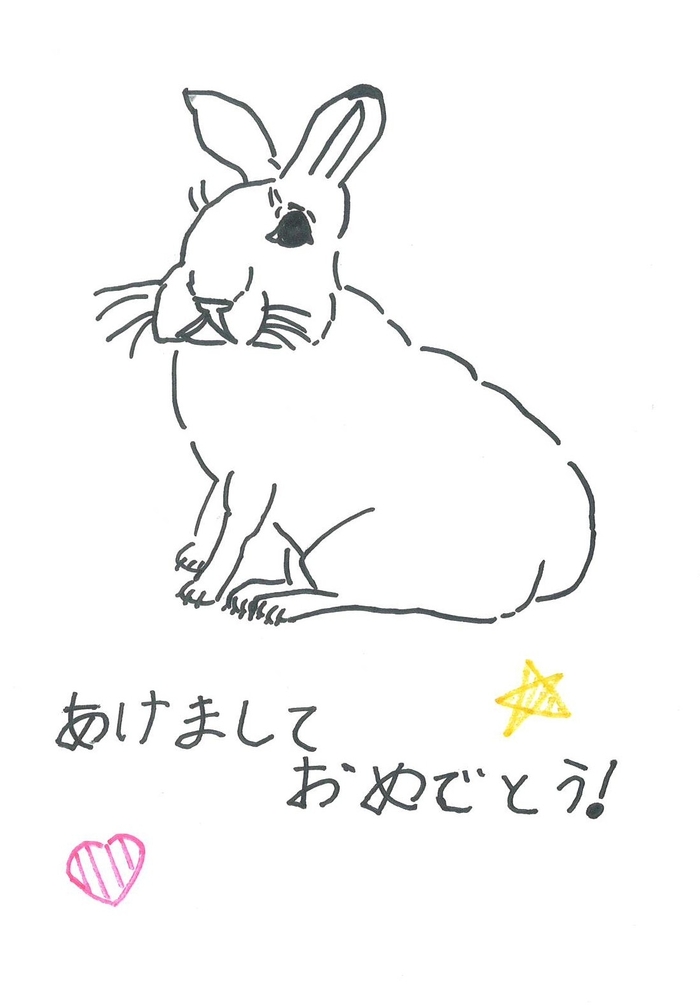 あけまして
おめでとう!